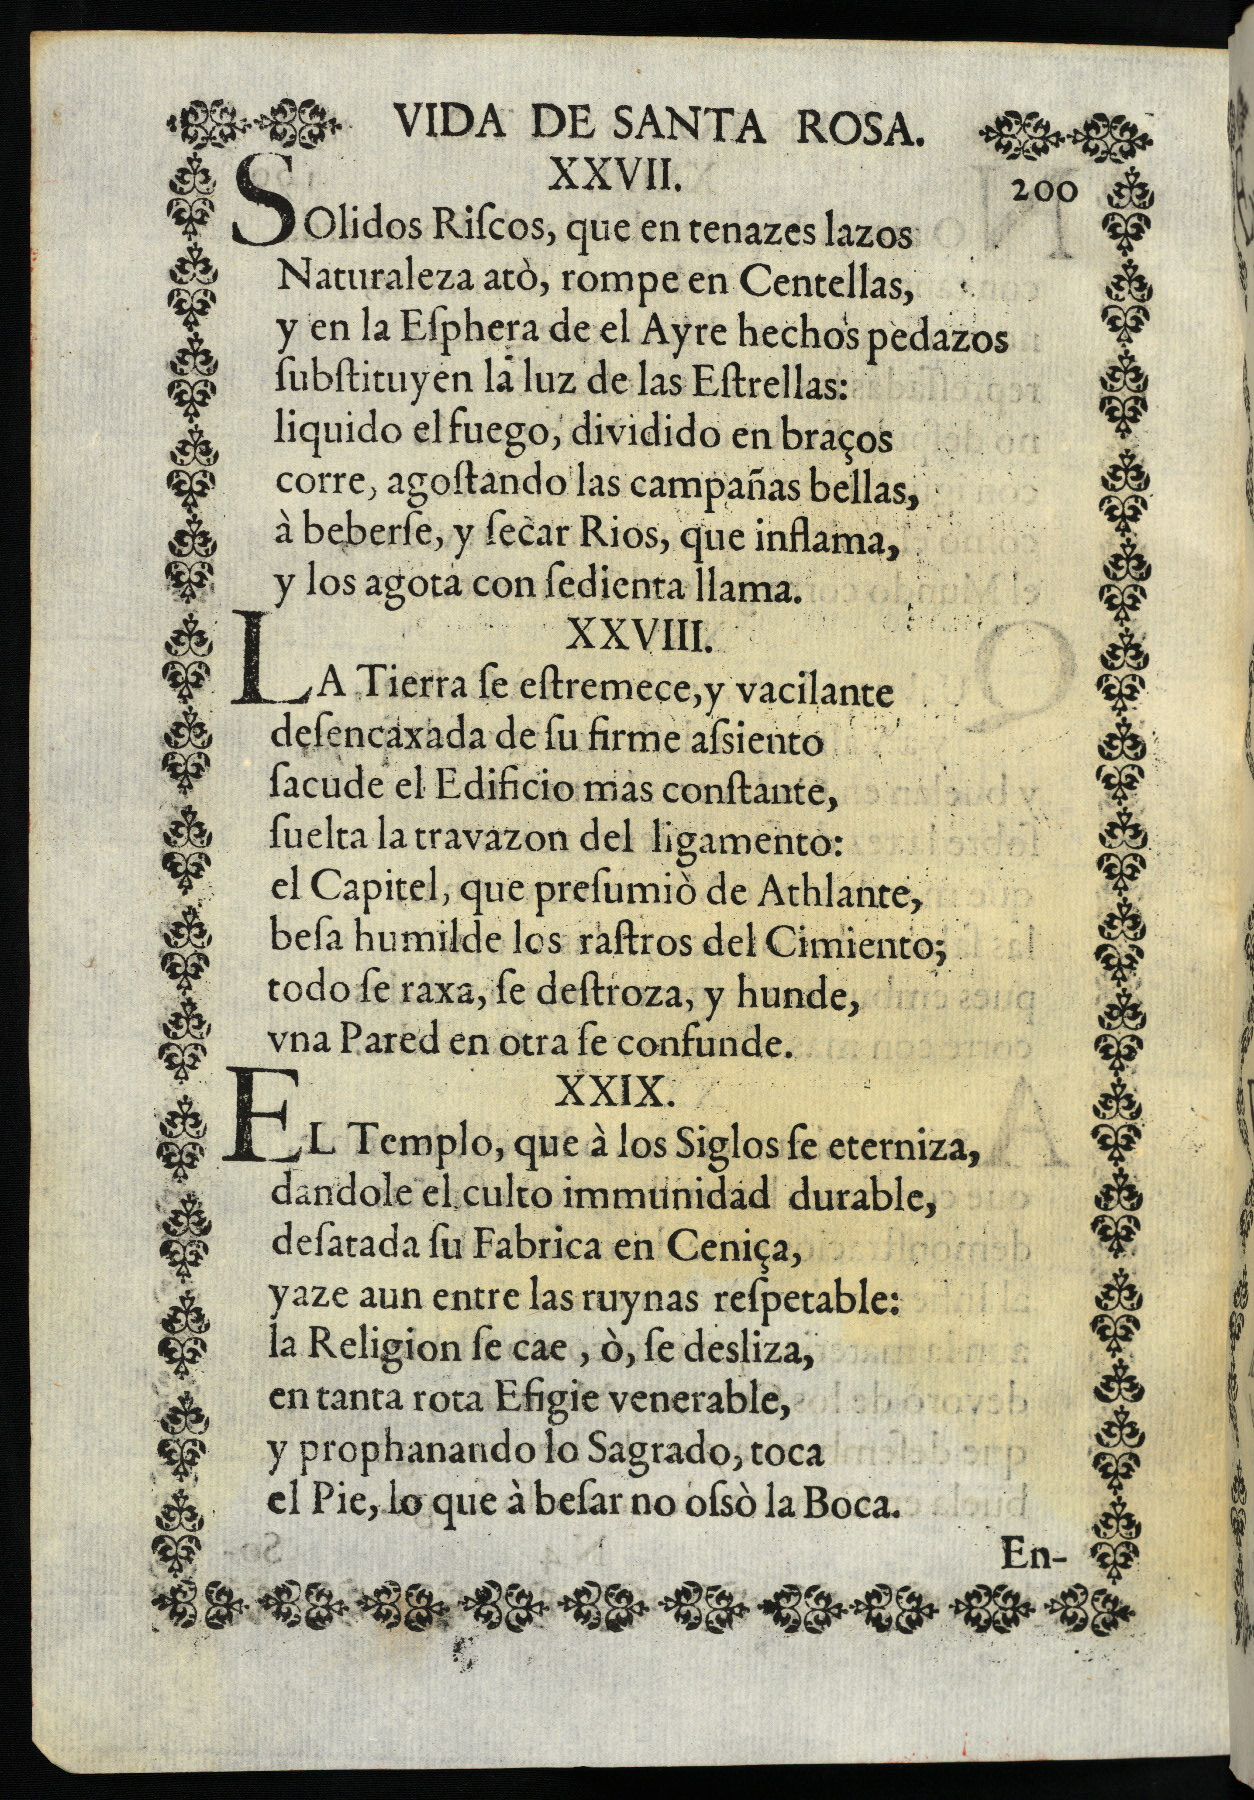 VIDA DE SANTA ROSA.
XXVII.
200
SOlidos Riſcos, que en tenazes lazos
Naturaleza atò, rompe en Centellas,
y en la Eſphera de el Ayre hechos pedazos
ſubſtituyen la luz de las Eſtrellas:
liquido el fuego, dividido en braços
corre, agoſtando las campañas bellas,
à beberſe, y ſecar Rios, que inflama,
y los agota con ſedienta llama.
XXVIII.
LA Tierra ſe eſtremece, y vacilante
deſencaxada de ſu firme aſsiento
ſacude el Edificio mas conſtante,
ſuelta la travazon del ligamento:
el Capitel, que preſumiò de Athlante,
beſa humilde los raſtros del Cimiento;
todo ſe raxa, ſe deſtroza, y hunde,
vna Pared en otra ſe confunde.
XXIX.
EL Templo, que à los Siglos ſe eterniza,
dandole el culto immunidad durable,
deſatada ſu Fabrica en Ceniça,
yaze aun entre las ruynas reſpetable:
la Religion ſe cae, ò, ſe desliza,
en tanta rota Efigie venerable,
y prophanando lo Sagrado, toca
el Pie, lo que à beſar no oſsò la Boca.
En-